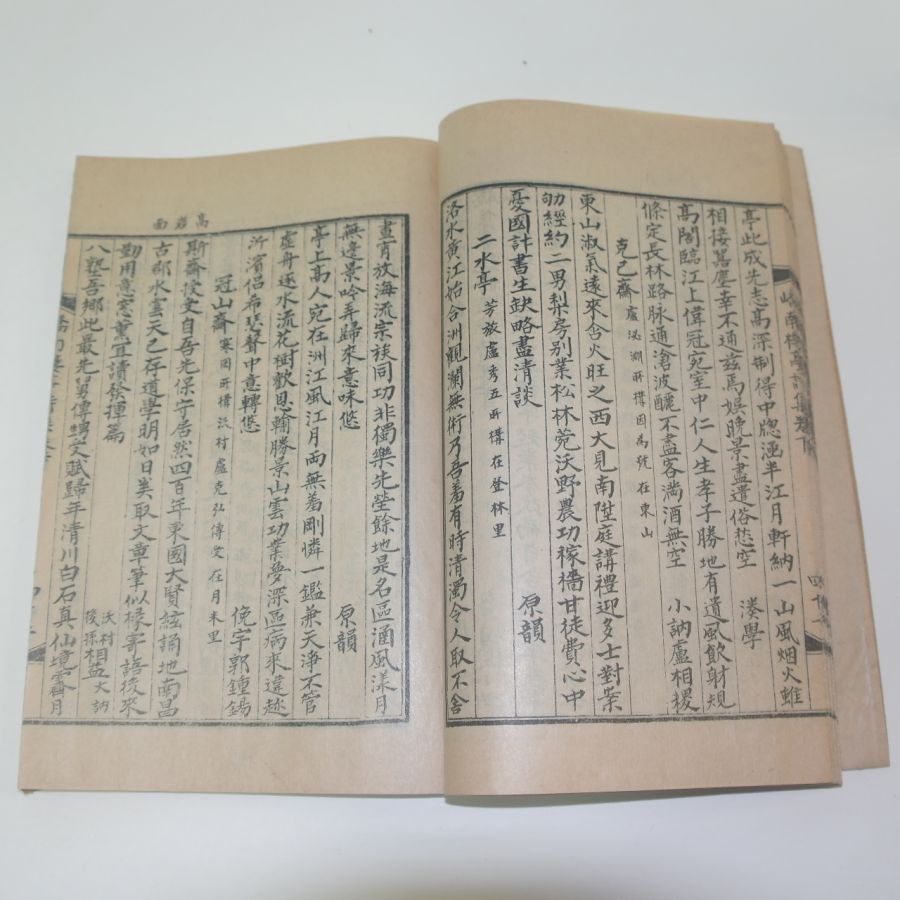 亭此成先志高深制得中牕涵半江月軒納一山風烟火雖
相接囂塵幸不通茲焉娛晚景盡遣俗愁空
高閣臨江上偉冠宛室中仁人生孝子勝地有遺風飮射規
條定長林路脉通滄波釃不盡客滿酒無空 小訥盧相稷
克己齋 盧泌淵所構因爲號在東山
東山淑氣遠來含火旺之西大見南陞庭講禮迎多士對案
劬經約二男梨房別業松林菀沃野農功稼穡甘徒費心中
憂國計書生缺略盡清談 原韻
二水亭 芳放盧秀五所構在登林里
洛水黃江始合洲觀瀾無術乃吾羞有時清濁令人取不舍
晝宵放海流宗族同功非獨樂先塋餘地是名區涵風漾月
無邊景吟弄歸來意味悠 原韻
亭上高人宛在洲江風江月両無羞剛憐一鑑兼天淨不管
虛舟逐水流花樹歡思輸勝景山雲功業夢深區病來違趁
沂濱侶希瑟聲中意轉悠 俛宇郭鍾錫
高岩面
冠山齋 寒岡所構沃村盧克弘傳受在月朱里
斯齋後受自吾先保守居然四百年東國大賢絃誦地南昌
古郡水雲天已存道學明如日美取文章筆似椽寄語後來
勤用意窓薰宜讀發揮篇 沃村後孫相益大訥
八塾吾鄕此最先舅傳甥受賦歸年清川白石真仙境霽月